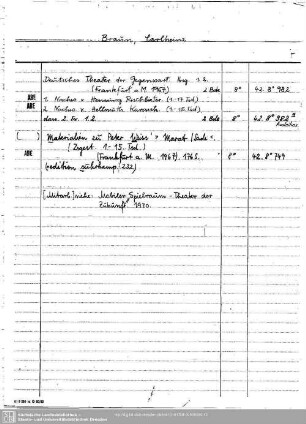 Braun, Karlheinz
Deutsches Theater der Gegenwart. Hrsg. 1.2.
(Frankfurt a. M. 1967) 2 Bde 8° 42. 8° 982
ABE 1. Nachw. v. Henning Rischbieter. (1-17. Tsd.)
ABE 2. Nachw. v. Hellmuth Karasek. (1-17 Tsd.)
dass. 2. Ex. 1.2. 2 Bde 8° 42. 8° 982
[ ] Materialien zu Peter Weiss' "Marat/Sade".
ABE (Zsgest. 1.-15. Tsd.)
(Frankfurt a. M. 1967). 176 S. 8° 42. 8° 749
(edition suhrkamp 232)
[Mitarb.] siehe: Mobiler Spielraum - Theater der
Zukunft. 1970.